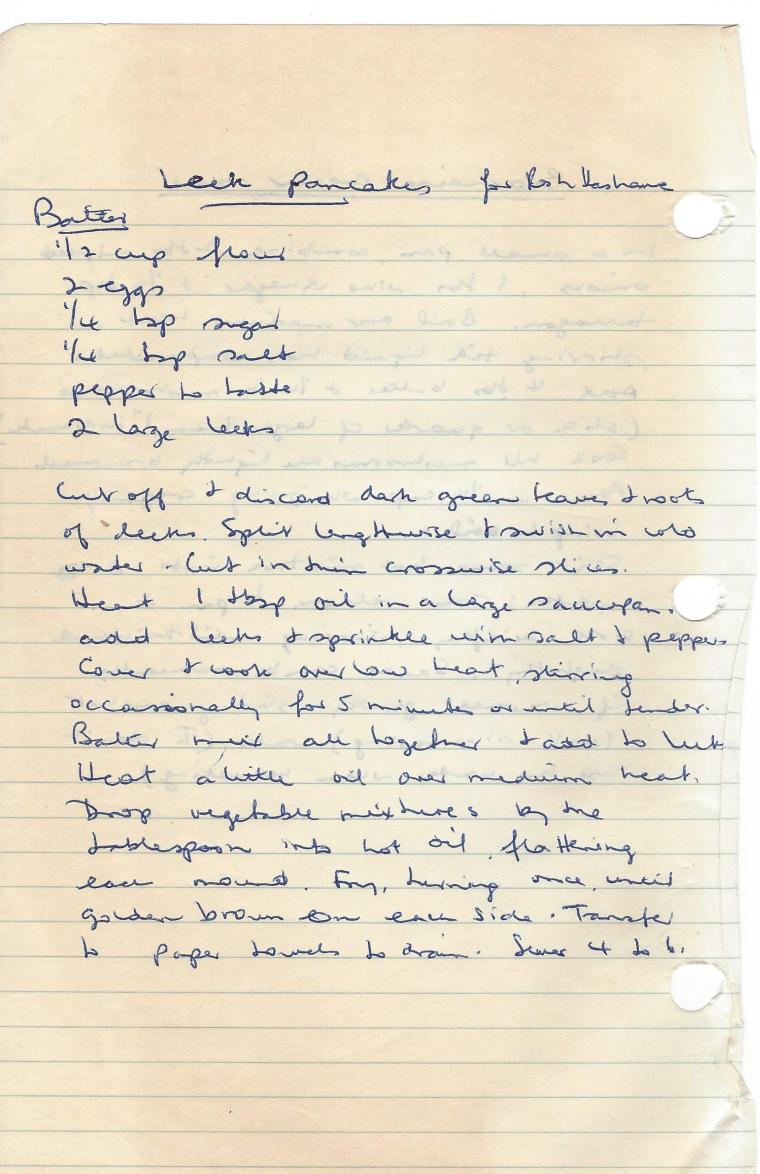 Leek Pancakes for Rosh Hashane
Batter
1/2 cup flour
2 eggs
1/4 tsp sugar
1/4 tsp salt
pepper to taste
2 large leeks
Cut off & discard dark green leaves & roots
of leeks. Split lengthwise & swish in cold
water. Cut in thin crosswise slices.
Heat 1 tbsp oil in a large saucepan.
add leeks & sprinkle with salt & pepper.
Cover & cook over low heat, stirring
occassionally for 5 minutes or until tender.
Batter mix all together & add to leek
Heat a little oil over medium heat.
Drop vegetable mixtures by the
tablespoon into hot oil, flattening
each mound. Fry, turning once, until
golden brown on each side. Transfer
to paper towels to drain. Serves 4 to 6.